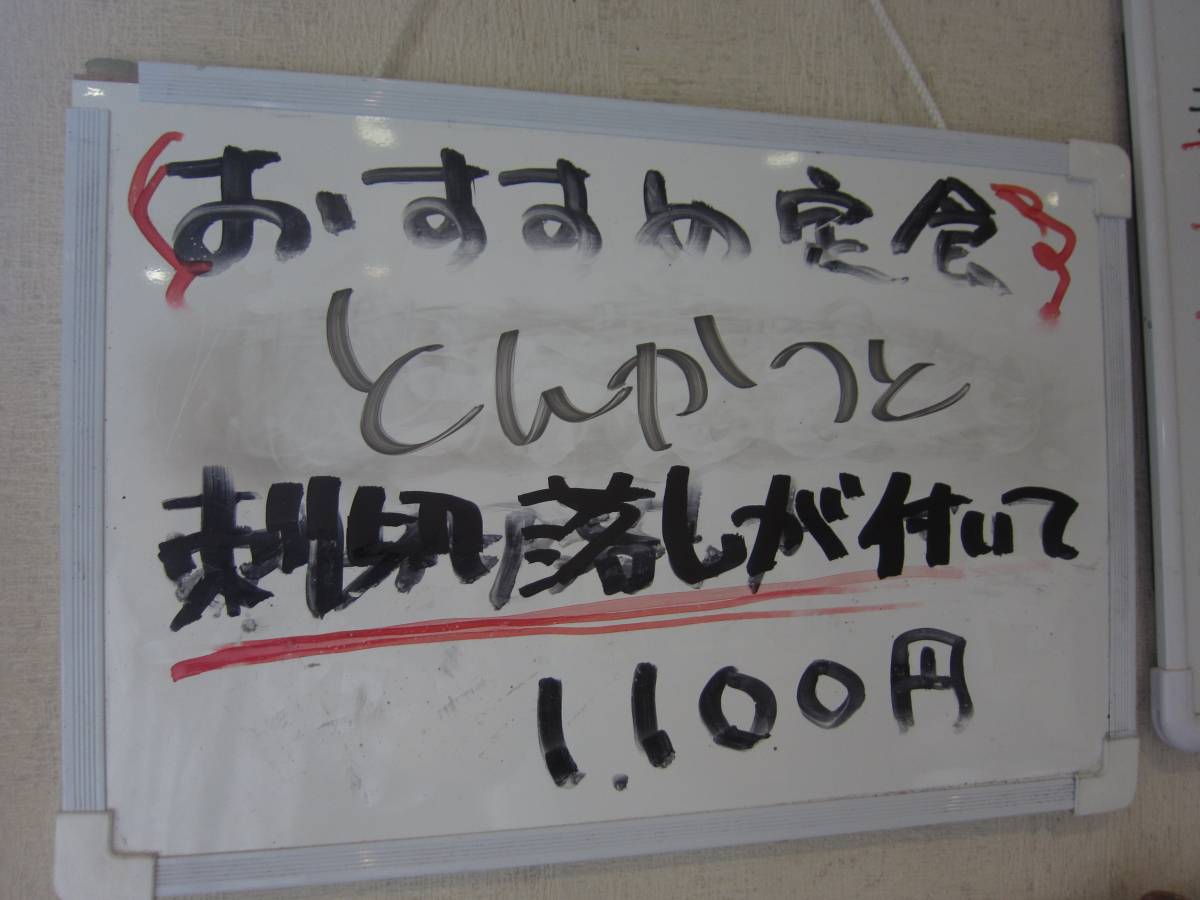 おすすめ定食
とんかつと
刺切落しが付いて
1.100円